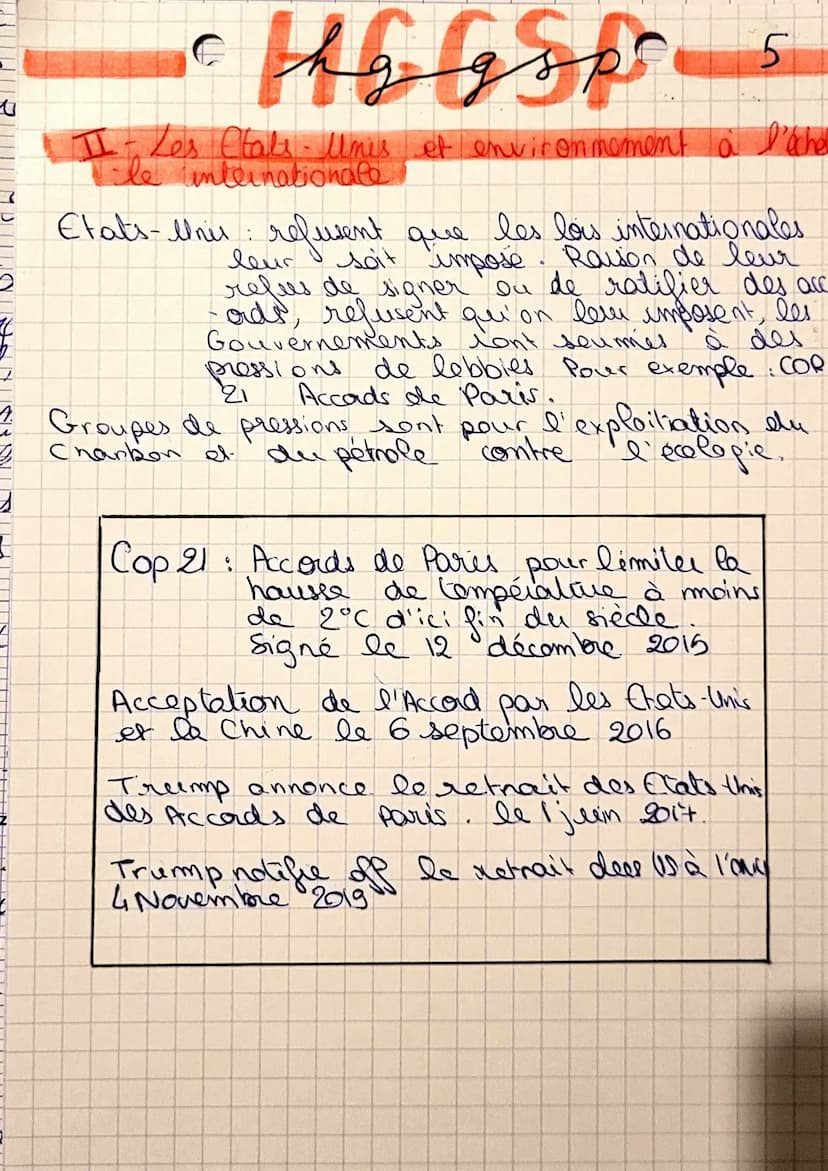 HGGSP
hggsp
5
II - Les Etats-Unis et environnement à l'échel
-le internationale
Etats-Unis : refusent que les lois internationales
leur soit imposé. Raison de leur
refus de signer ou de ratifier des acc
-ords, refusent qu'on leur imposent, les
Gouvernements sont soumis à des
pressions de lobbies Pour exemple : COP
21 Accods de Paris.
Groupes de pressions sont pour l'exploitation du
Charbon et du pétrole contre l'écologie.
Cop 21 : Accords de Paris pour limiter la
hausse de température à moins
de 2°C d'ici fin du siècle.
Signé le 12 décembre 2015
Acceptation de l'Accord par les Etats-Unis
et la Chine le 6 septembre 2016
Trump annonce le retrait des Etats-Unis
des Accords de Paris. le 1 juin 2017.
Trump notifie off le retrait des US à l'onu
4 Novembre 2019